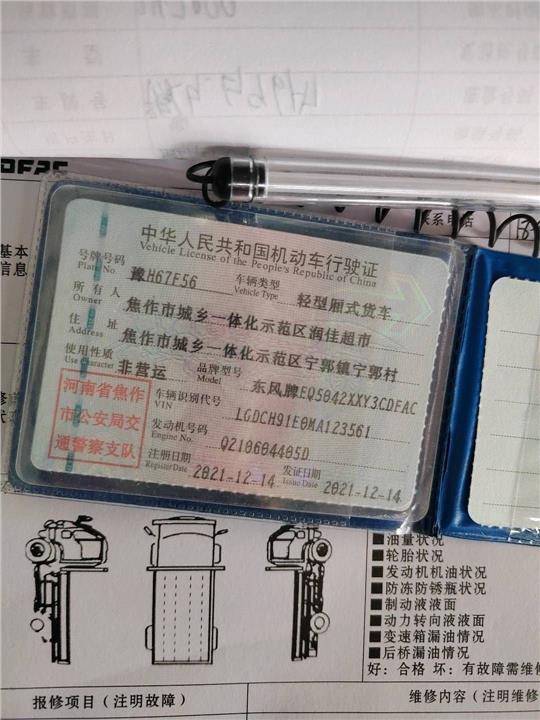 中华人民共和国机动车行驶证
Vehicle License of the People's Republic of China
号牌号码 豫H67F56 车辆类型 轻型厢式货车
Plate No. Vehicle Type
所有人 焦作市城乡一体化示范区润佳超市
Owner
住址 焦作市城乡一体化示范区宁郭镇宁郭村
Address
使用性质 非营运 品牌型号 东风牌EQ5042XXY3CDFAC
Use Character Model
河南省焦作
市公安局交
通警察支队
车辆识别代号 LGDCH91E0MA123561
VIN
发动机号码 Q210604405D
Engine No.
注册日期 2021-12-14 发证日期 2021-12-14
Register Date Issue Date
联系电话
基本
信息
油量状况
轮胎状况
发动机机油状况
防冻防锈瓶状况
制动液液面
动力转向液液面
变速箱漏油情况
后桥漏油情况
好：合格 坏：有故障需维修
报修项目（注明故障）
维修内容（注明维